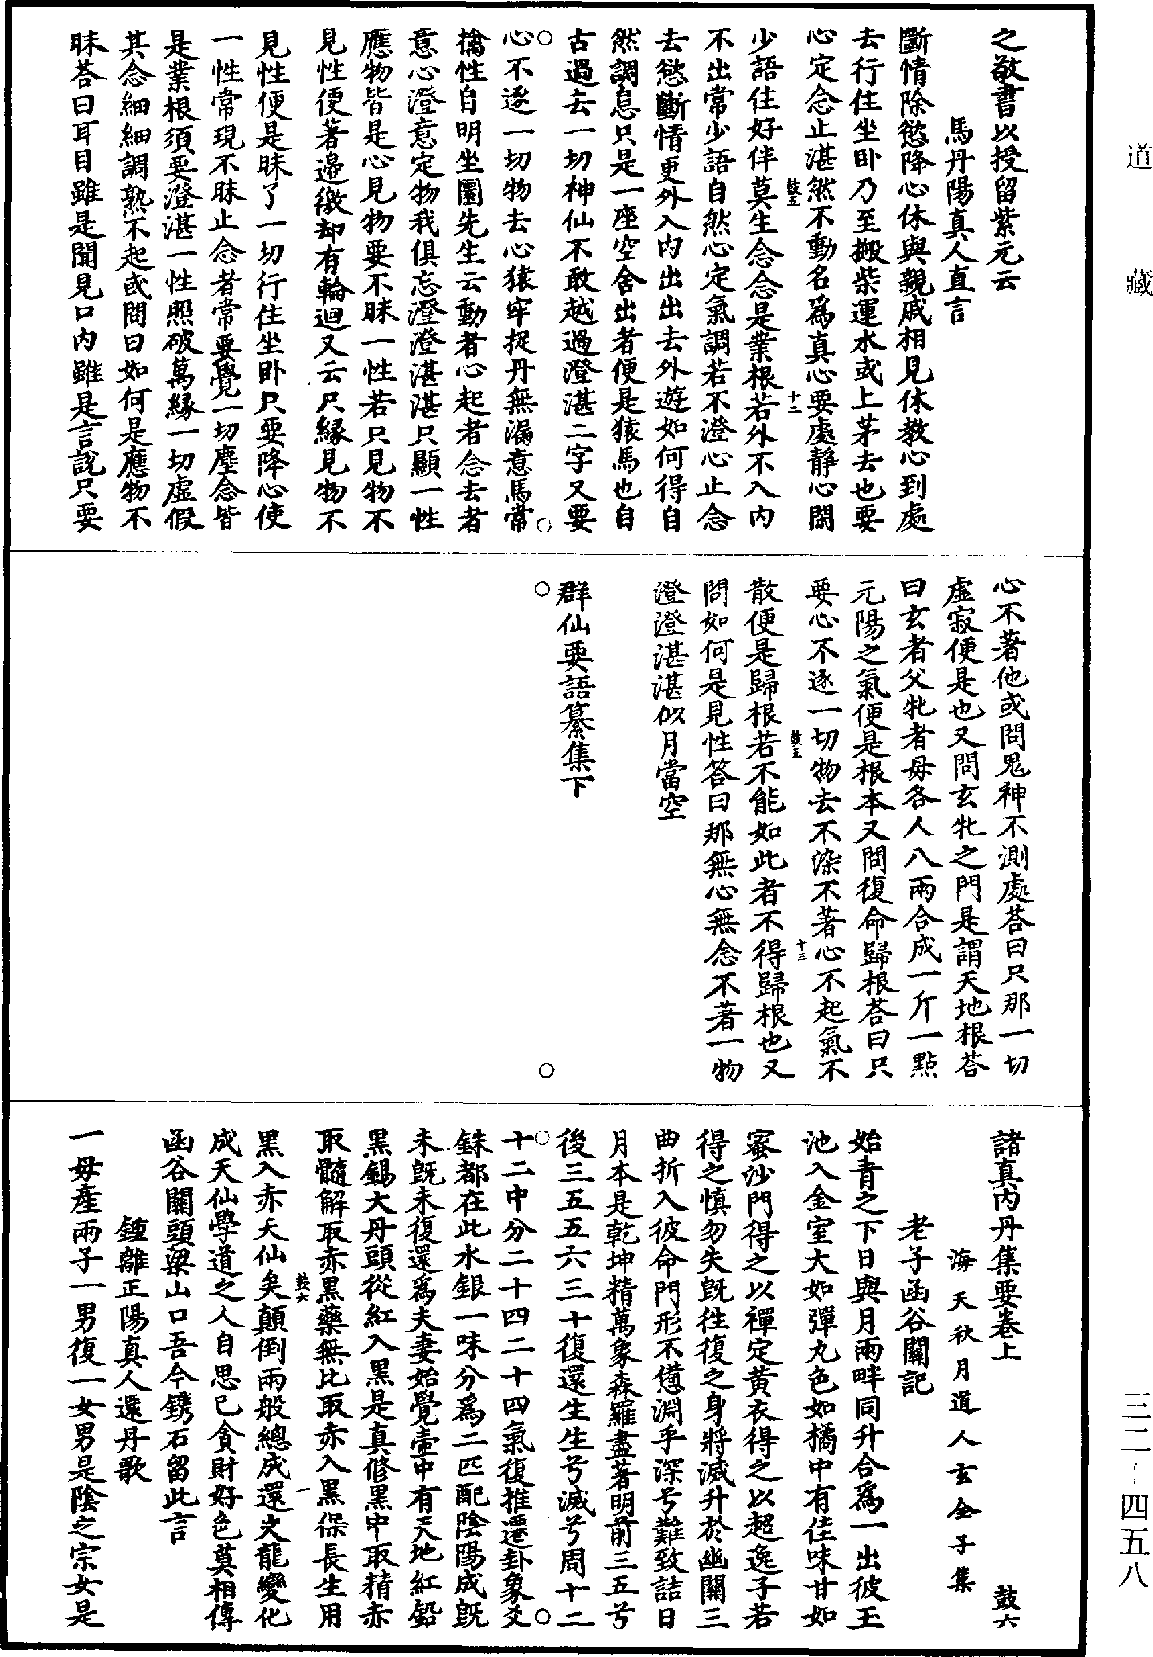 道藏
三二-四五八
之敬書以授留紫元云
馬丹陽真人直言
斷情除慾降心休與親戚相見休教心到處
去行住坐卧乃至搬柴運水或上茅去也要
心定念止湛然不動名為真心要處靜心閑
少語住好伴莫生念念是業根若外不入内
鼓五
十二
不出常少語自然心定氣調若不澄心止念
去慾斷情更外入内出出去外遊如何得自
然調息只是一座空舍出者便是猿馬也自
古過去一切神仙不敢越過澄湛二字又要
心不逐一切物去心猿牢捉丹無漏意馬常
擒性自明坐圜先生云動者心起者念去者
意心澄意定物我俱忘澄澄湛湛只顯一性
應物皆是心見物要不昧一性若只見物不
見性便著邊徼却有輪迴又云只緣見物不
見性便是昧了一切行住坐卧只要降心使
一性常現不昧止念者常要覺一切塵念皆
是業根須要澄湛一性照破萬緣一切虛假
其念細細調熟不起或問曰如何是應物不
昧荅曰耳目雖是聞見口内雖是言說只要
心不著他或問鬼神不測處荅曰只那一切
虛寂便是也又問玄牝之門是謂天地根荅
曰玄者父牝者母各人八兩合成一斤一點
元陽之氣便是根本又問復命歸根荅曰只
要心不逐一切物去不染不著心不起氣不
鼓五
十三
散便是歸根若不能如此者不得歸根也又
問如何是見性答曰那無心無念不著一物
澄澄湛湛似月當空
群仙要語纂集下
諸真内丹集要卷上
鼓六
海天秋月道人玄全子集
老子函谷關記
始青之下日與月兩畔同升合為一出彼玉
池入金室大如彈丸色如橘中有佳味甘如
蜜沙門得之以禪定黄衣得之以超逸子若
得之慎勿失既往復之身將滅升於幽關三
曲折入彼命門形不愆淵乎深兮難致詰日
月本是乾坤精萬象森羅盡著明前三五兮
後三五五六三十復還生生兮滅兮周十二
十二中分二十四二十四氣復推遷卦象爻
銖都在此水銀一味分為二匹配陰陽成既
未既未復還為夫妻始覺壷中有天地紅鉛
黑錫大丹頭從紅入黑是真修黑中取精赤
取髓解取赤黑藥無比取赤入黑保長生用
鼓六
一
黑入赤天仙矣顛倒兩般總成還火龍變化
成天仙學道之人自思已貪財好色莫相傳
函谷關頭梁山口吾今鐫石留此言
鍾離正陽真人還丹歌
一母產兩子一男復一女男是陰之宗女是